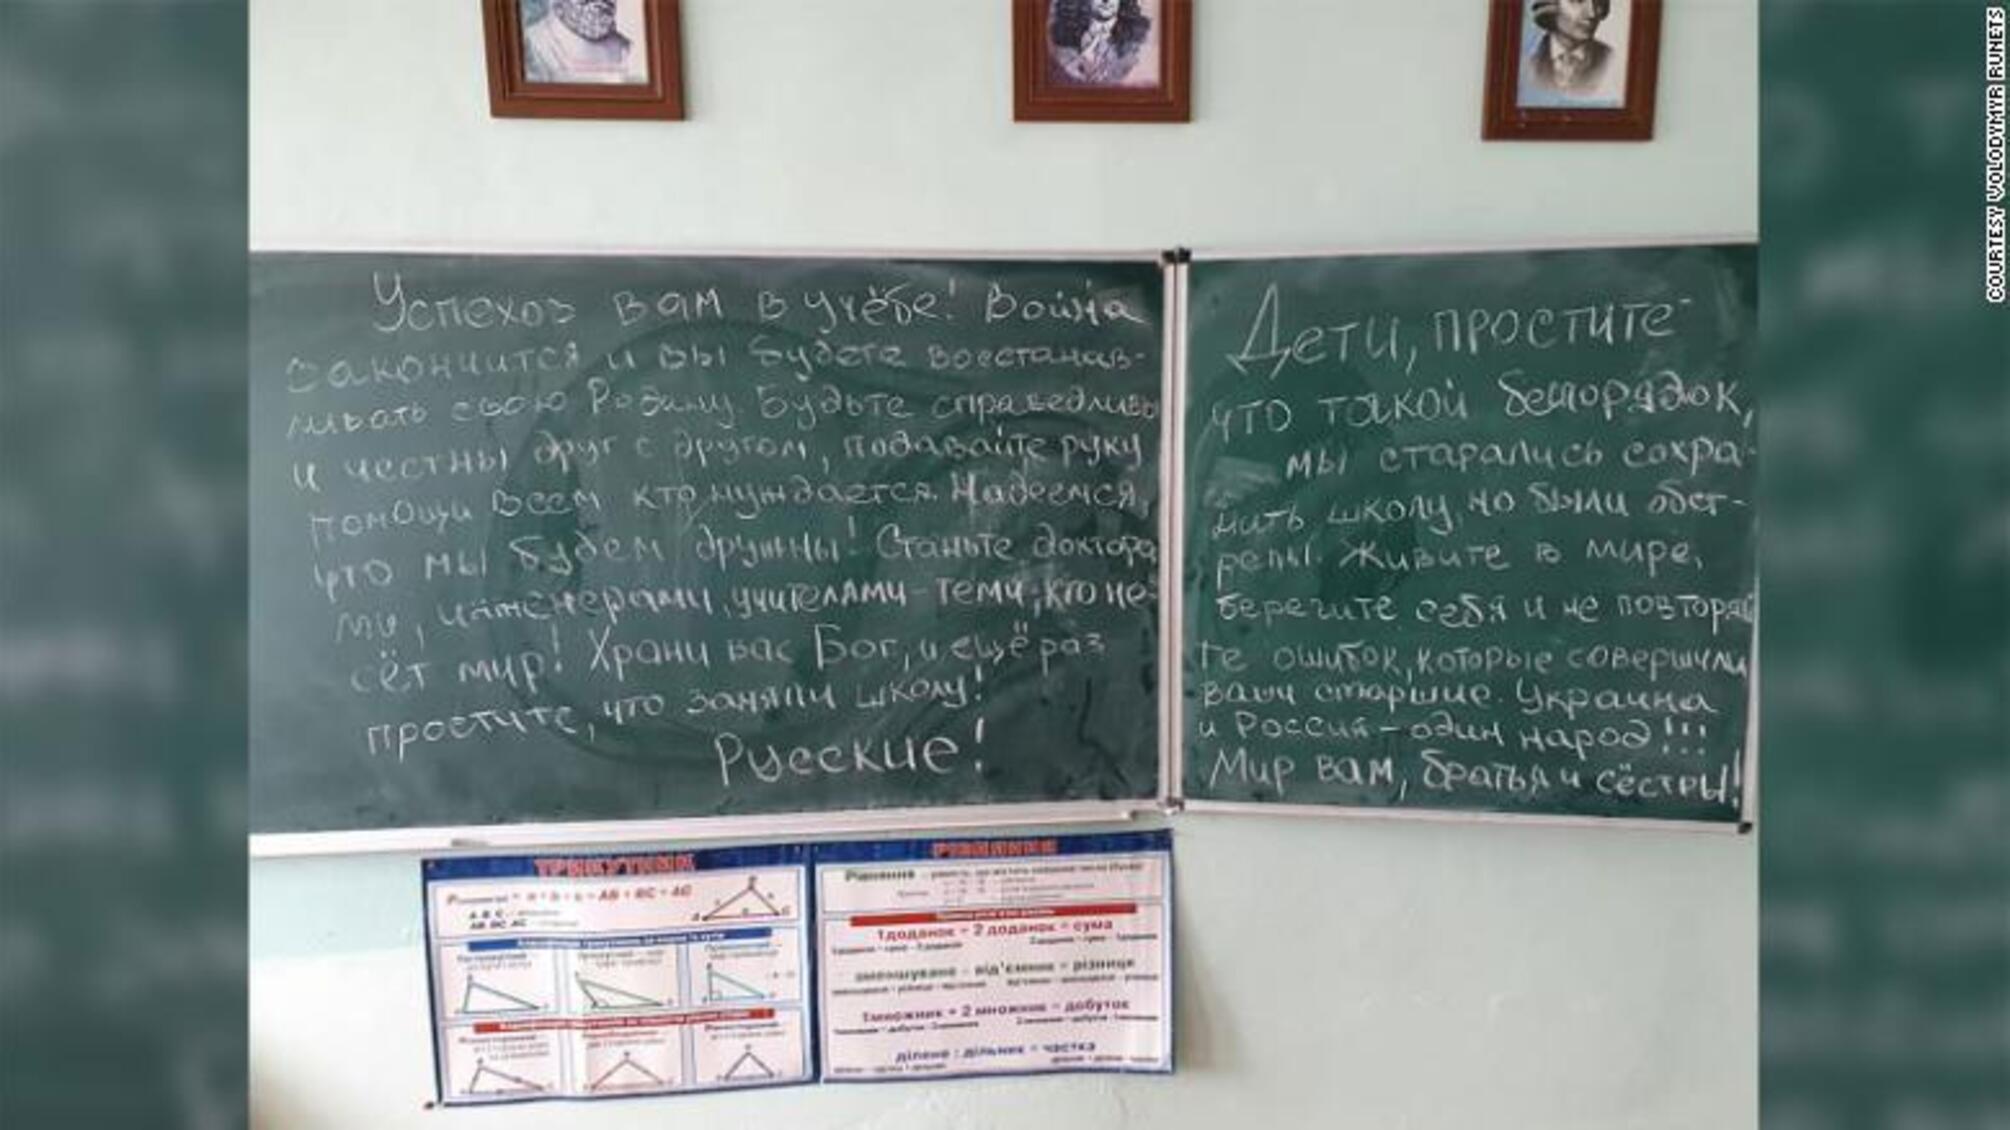 Успехов вам в учёбе! Война
закончится и вы будете восстанав-
ливать свою Родину. Будьте справедливы
и честны друг с другом, подавайте руку
помощи всем кто нуждается. Надеемся,
что мы будем дружны! Станьте доктора
ми, инженерами, учителями - теми, кто не-
сёт мир! Храни вас Бог, и ещё раз
простите, что заняли школу!
Русские!
Дети, простите
что такой беспорядок,
мы старались сохра-
нить школу, но были обст-
релы. Живите в мире,
берегите себя и не повторяй
те ошибок, которые совершили
ваши старшие. Украина
и Россия - один народ!!!
Мир вам, братья и сёстры!
ТРИКУТНИК
= a + b + c = AB + BC + AC
A, B, C
AB, BC, AC
РІВНЯННЯ
Рівняння
1доданок + 2 доданок = сума
зменшуване - від'ємник = різниця
1множник • 2 множник = добуток
ділене : дільник = частка
COURTESY VOLODYMYR RUNETS